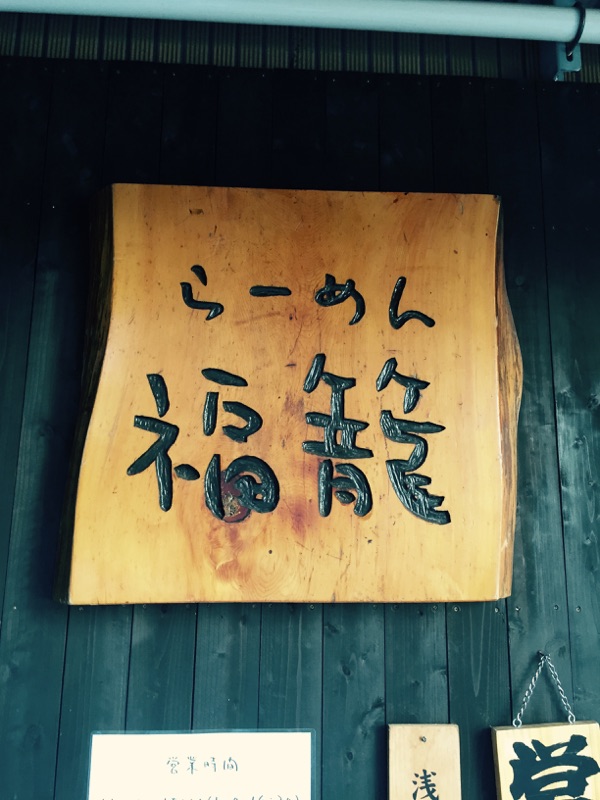 らーめん
福籠
営業時間
浅
営